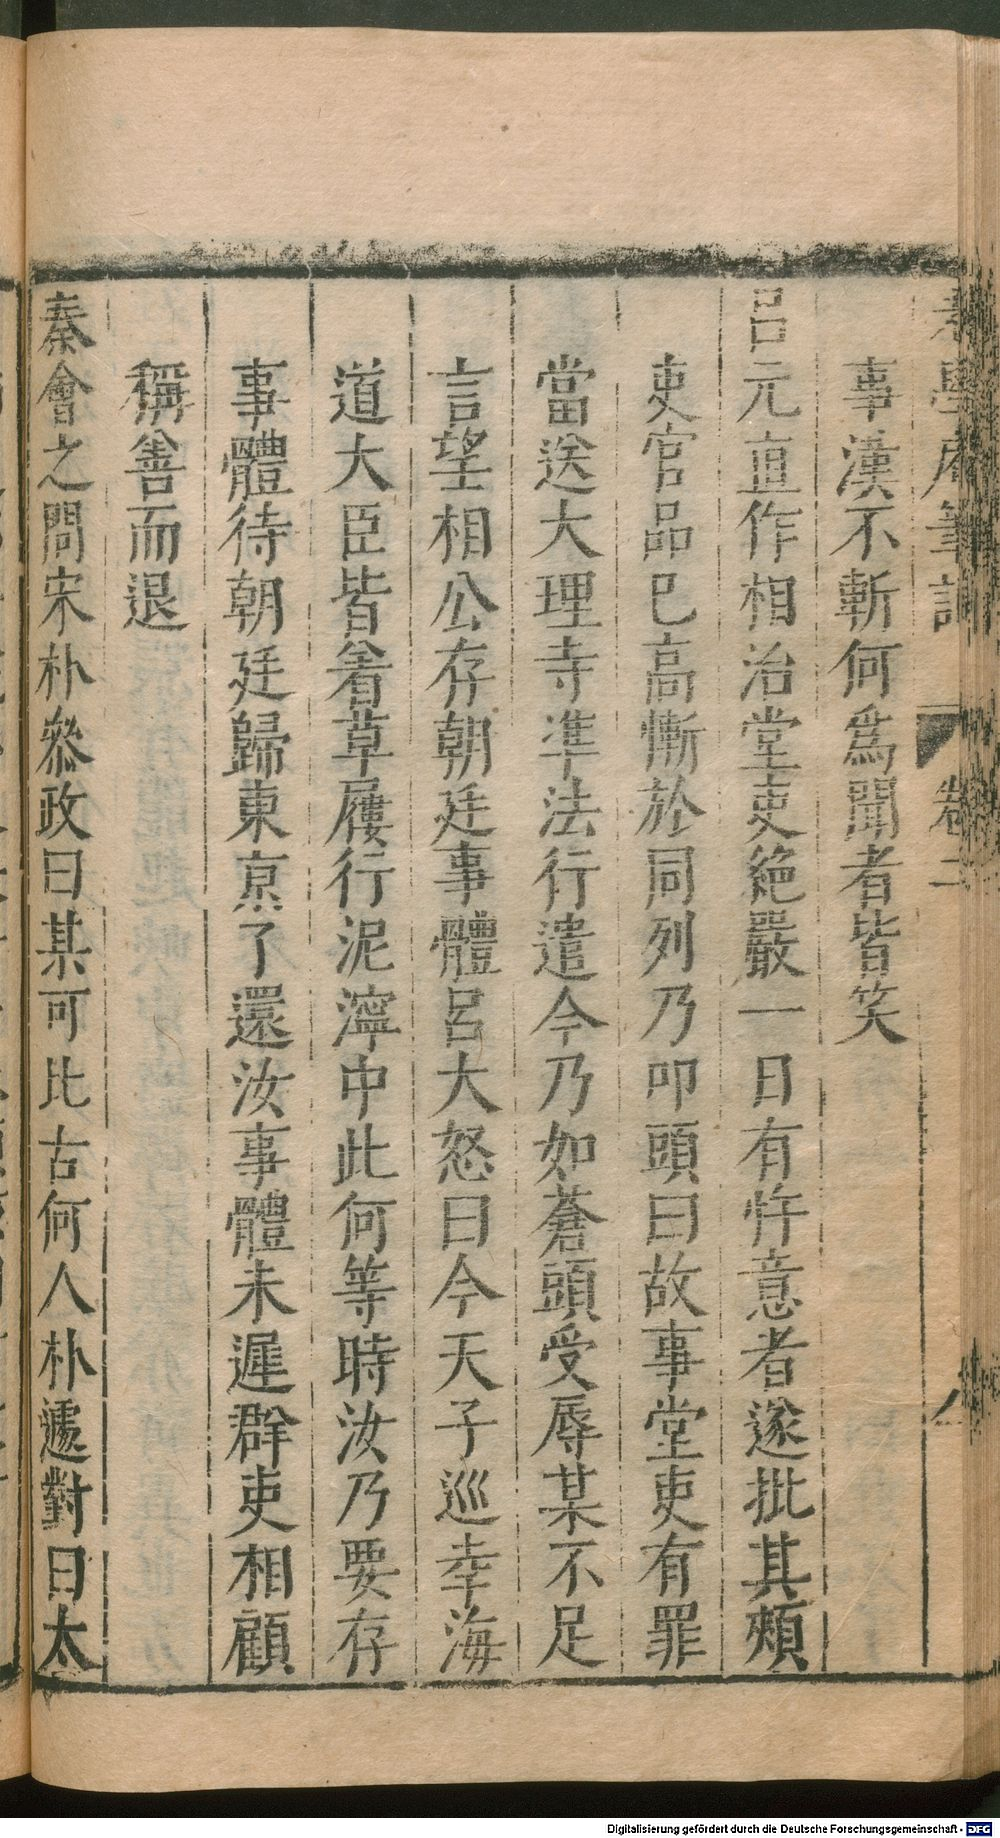 老學庵筆記 卷二 八
事漢不斬何爲聞者皆笑
呂元直作相治堂吏絶嚴一日有忤意者遂批其頰
吏官品已高慚於同列乃叩頭曰故事堂吏有罪
當送大理寺準法行遣今乃如蒼頭受辱某不足
言望相公存朝廷事體呂大怒曰今天子巡幸海
道大臣皆着草屨行泥濘中此何等時汝乃要存
事體待朝廷歸東亰了還汝事體未遲群吏相顧
稱善而退
秦會之問宋朴叅政曰某可比古何人朴遽對曰太
Digitalisierung gefördert durch die Deutsche Forschungsgemeinschaft - DFG